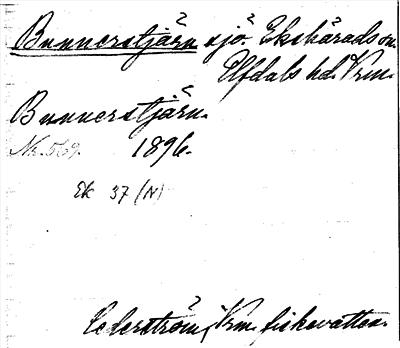 Bunnerstjärn sjö. Ekshärads sn.
Elfdals hd. Vrm.
Bunnerstjärn.
Nr. 569. 1896.
Ek 37 (N)
Cederström, Vrm. fiskevatten.